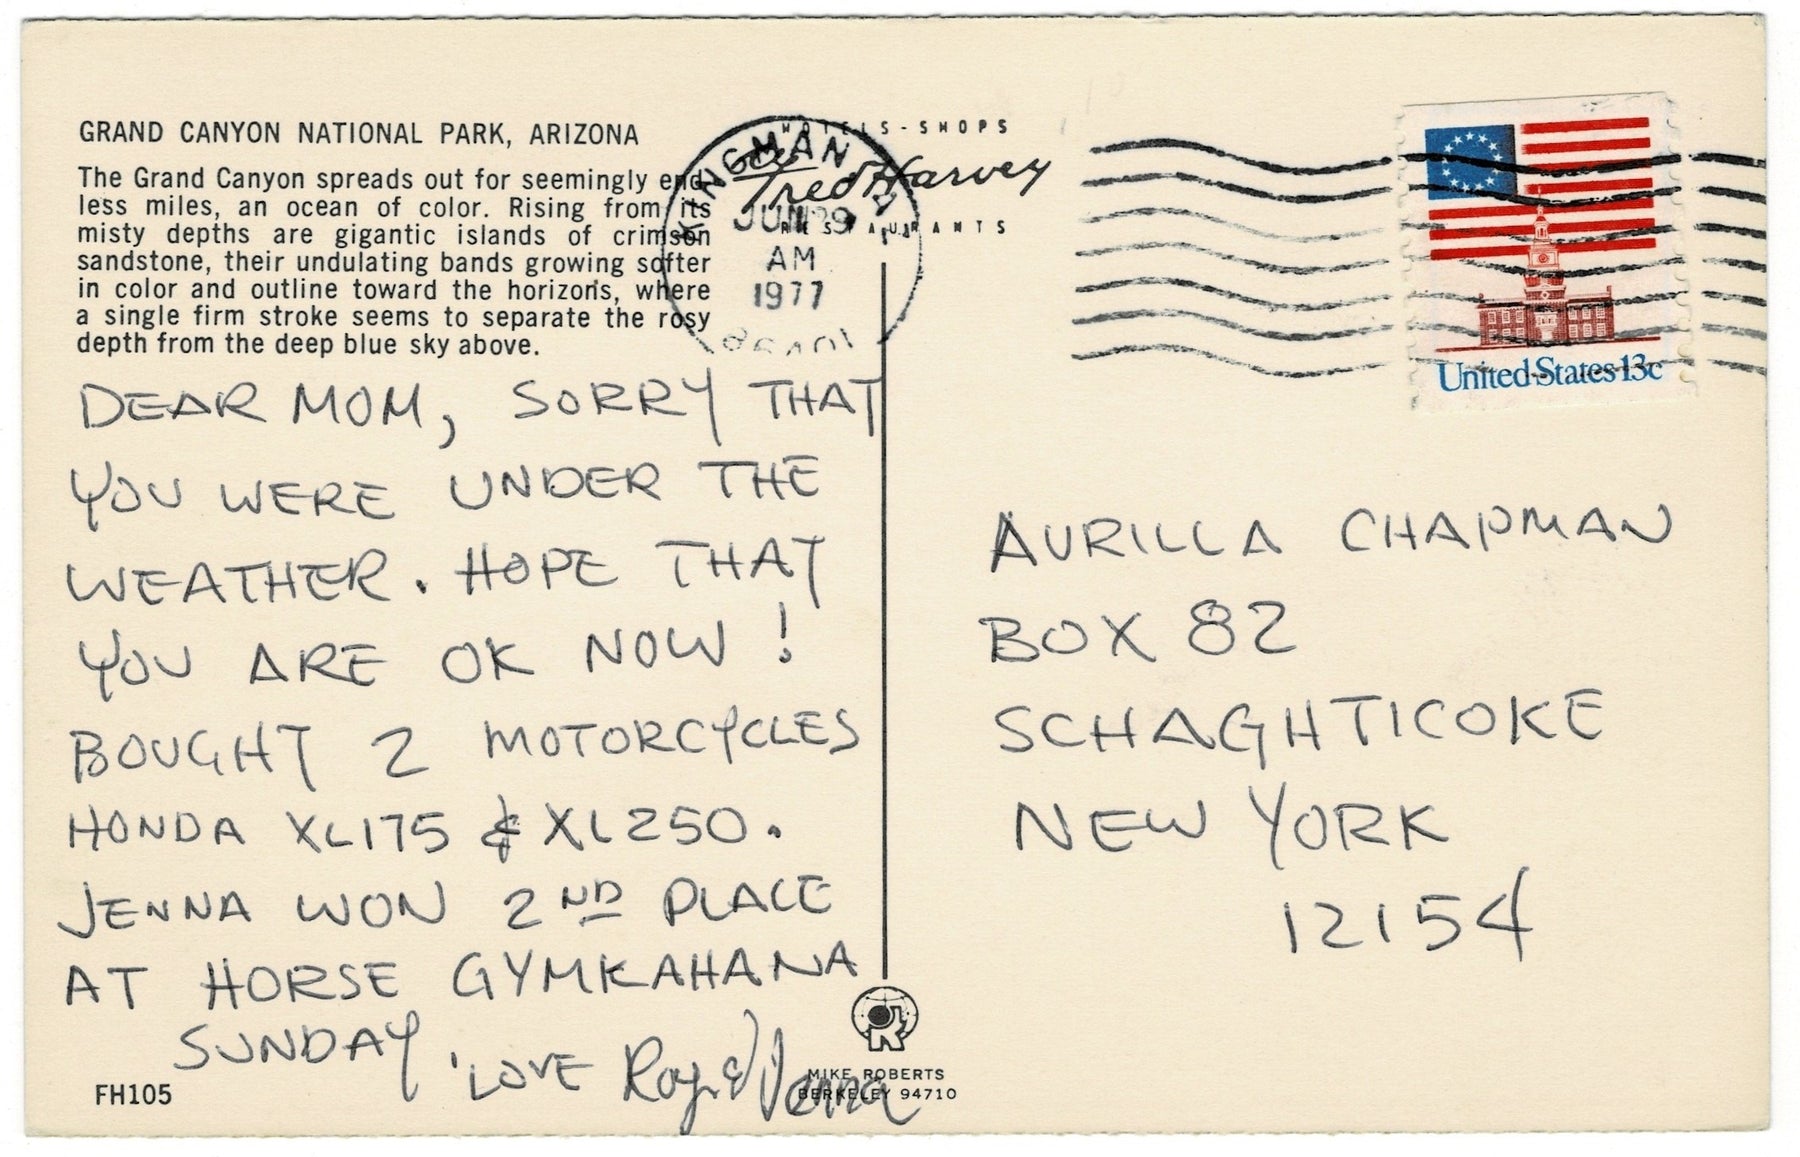 GRAND CANYON NATIONAL PARK, ARIZONA
The Grand Canyon spreads out for seemingly end-
less miles, an ocean of color. Rising from its
misty depths are gigantic islands of crimson
sandstone, their undulating bands growing softer
in color and outline toward the horizons, where
a single firm stroke seems to separate the rosy
depth from the deep blue sky above.
HOTELS - SHOPS
Fred Harvey
RESTAURANTS
KINGMAN
JUN 29
AM
1977
United States 13c
DEAR MOM, SORRY THAT
YOU WERE UNDER THE
WEATHER. HOPE THAT
YOU ARE OK NOW!
BOUGHT 2 MOTORCYCLES
HONDA XL175 & XL250.
JENNA WON 2ND PLACE
AT HORSE GYMKAHANA
SUNDAY. LOVE Roy & Jenna
AURILLA CHAPMAN
BOX 82
SCHAGHTICOKE
NEW YORK
12154
MIKE ROBERTS
BERKELEY 94710
FH105